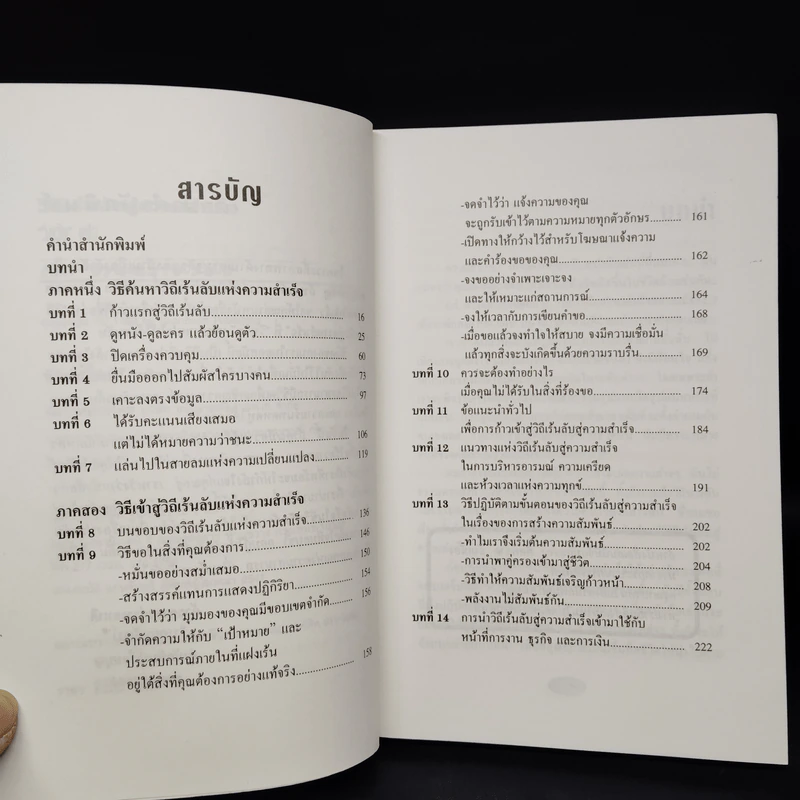 สารบัญ
คำนำสำนักพิมพ์
บทนำ
ภาคหนึ่ง วิธีค้นหาวิถีเร้นลับแห่งความสำเร็จ
บทที่ 1 ก้าวแรกสู่วิถีเร้นลับ 16
บทที่ 2 ดูหนัง-ดูละคร แล้วย้อนดูตัว 25
บทที่ 3 ปิดเครื่องควบคุม 60
บทที่ 4 ยื่นมือออกไปสัมผัสใครบางคน 73
บทที่ 5 เคาะลงตรงข้อมูล 97
บทที่ 6 ได้รับคะแนนเสียงเสมอ
แต่ไม่ได้หมายความว่าชนะ 106
บทที่ 7 แล่นไปในสายลมแห่งความเปลี่ยนแปลง 119
ภาคสอง วิธีเข้าสู่วิถีเร้นลับแห่งความสำเร็จ
บทที่ 8 บนขอบของวิถีเร้นลับแห่งความสำเร็จ 136
บทที่ 9 วิธีขอในสิ่งที่คุณต้องการ 146
-หมั่นขออย่างสม่ำเสมอ 150
-สร้างสรรค์แทนการแสดงปฏิกิริยา 154
-จดจำไว้ว่า มุมมองของคุณมีขอบเขตจำกัด 156
-จำกัดความให้กับ "เป้าหมาย" และ
ประสบการณ์ภายในที่แฝงเร้น
อยู่ใต้สิ่งที่คุณต้องการอย่างแท้จริง 158
-จดจำไว้ว่า แจ้งความของคุณ
จะถูกรับเข้าไว้ตามความหมายทุกตัวอักษร 161
-เปิดทางให้กว้างไว้สำหรับโฆษณาแจ้งความ
และคำร้องขอของคุณ 162
-จงขออย่างจำเพาะเจาะจง
และให้เหมาะแก่สถานการณ์ 164
-จงให้เวลากับการเขียนคำขอ 168
-เมื่อขอแล้วจงทำใจให้สบาย จงมีความเชื่อมั่น
แล้วทุกสิ่งจะบังเกิดขึ้นด้วยความราบรื่น 169
บทที่ 10 ควรจะต้องทำอย่างไร
เมื่อคุณไม่ได้รับในสิ่งที่ร้องขอ 174
บทที่ 11 ข้อแนะนำทั่วไป
เพื่อการก้าวเข้าสู่วิถีเร้นลับสู่ความสำเร็จ 184
บทที่ 12 แนวทางแห่งวิถีเร้นลับสู่ความสำเร็จ
ในการบริหารอารมณ์ ความเครียด
และห้วงเวลาแห่งความทุกข์ 191
บทที่ 13 วิธีปฏิบัติตามขั้นตอนของวิถีเร้นลับสู่ความสำเร็จ
ในเรื่องของการสร้างความสัมพันธ์ 202
-ทำไมเราจึงเริ่มต้นความสัมพันธ์ 202
-การนำพาคู่ครองเข้ามาสู่ชีวิต 204
-วิธีทำให้ความสัมพันธ์เจริญก้าวหน้า 208
-พลังงานไม่สัมพันธ์กัน 209
บทที่ 14 การนำวิถีเร้นลับสู่ความสำเร็จเข้ามาใช้กับ
หน้าที่การงาน ธุรกิจ และการเงิน 222